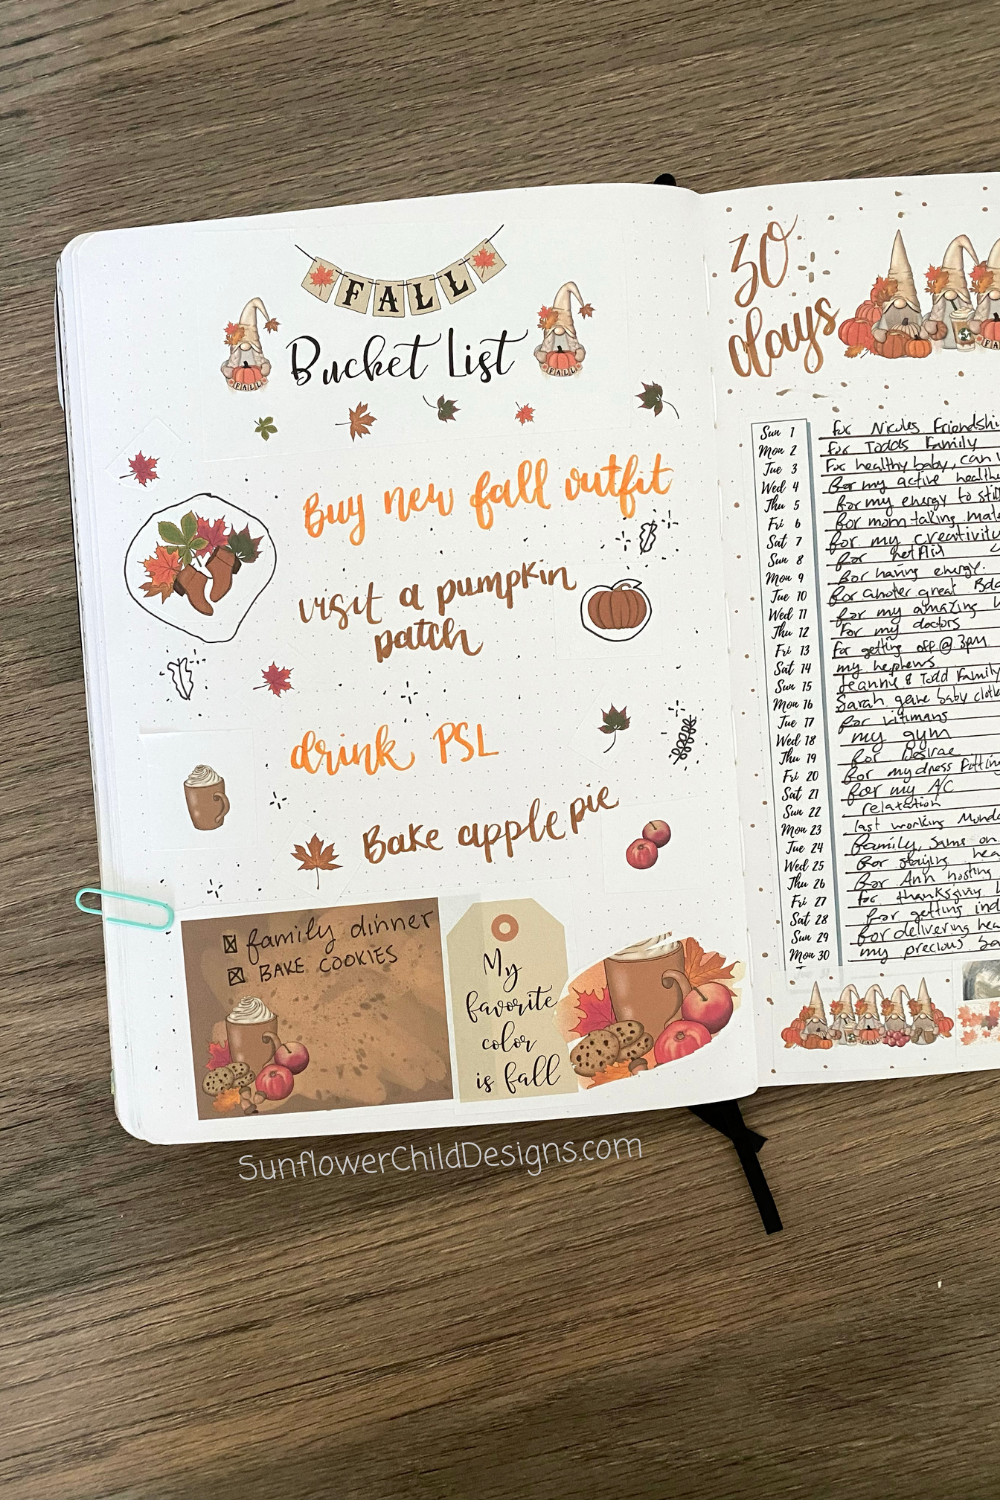 FALL
Bucket List
Buy new fall outfit
visit a pumpkin
patch
drink PSL
Bake apple pie
family dinner
BAKE COOKIES
My
favorite
color
is fall
SunflowerChildDesigns.com
30
days
Sun 1 for Nicoles Friendshi
Mon 2 for Todds Family
Tue 3 For healthy baby, can
Wed 4 for my active healthe
Thu 5 for my energy to still
Fri 6 for mom taking mate
Sat 7 for my creativity
Sun 8 for netflix
Mon 9 for having energy.
Tue 10 for another great
Wed 11 for my amazing
Thu 12 For my doctors
Fri 13 for getting off @ 3pm
Sat 14 my nephews
Sun 15 Jeanne & Todd Family
Mon 16 Sarah gave baby cloth
Tue 17 for vitimans
Wed 18 my gym
Thu 19 for Desirae
Fri 20 for my dress fitting
Sat 21 for my A/C
Sun 22 relaxation
Mon 23 last working Monda
Tue 24 family, Sams on
Wed 25 for staying hea
Thu 26 for Ann hosting
Fri 27 for thanksgiving
Sat 28 for getting ind
Sun 29 for delivering hea
Mon 30 my precious ba